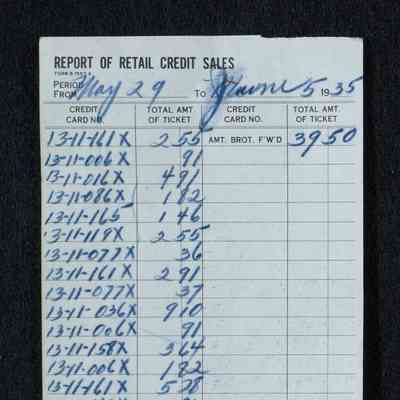 REPORT OF RETAIL CREDIT SALES
PERIOD FROM May 29 TO June 5 1935
CREDIT CARD NO. TOTAL AMT. OF TICKET CREDIT CARD NO. TOTAL AMT. OF TICKET
13-11-161X 2 55 AMT. BROT. F'W'D 39 50
13-11-006X 91
13-11-016X 4 91
13-11-086X 1 82
13-11-165 1 46
13-11-119X 2 55
13-11-077X 36
13-11-161X 2 91
13-11-077X 37
13-11-036X 9 10
13-11-006X 91
13-11-158X 3 64
13-11-006X 1 82
13-11-161X 5 28